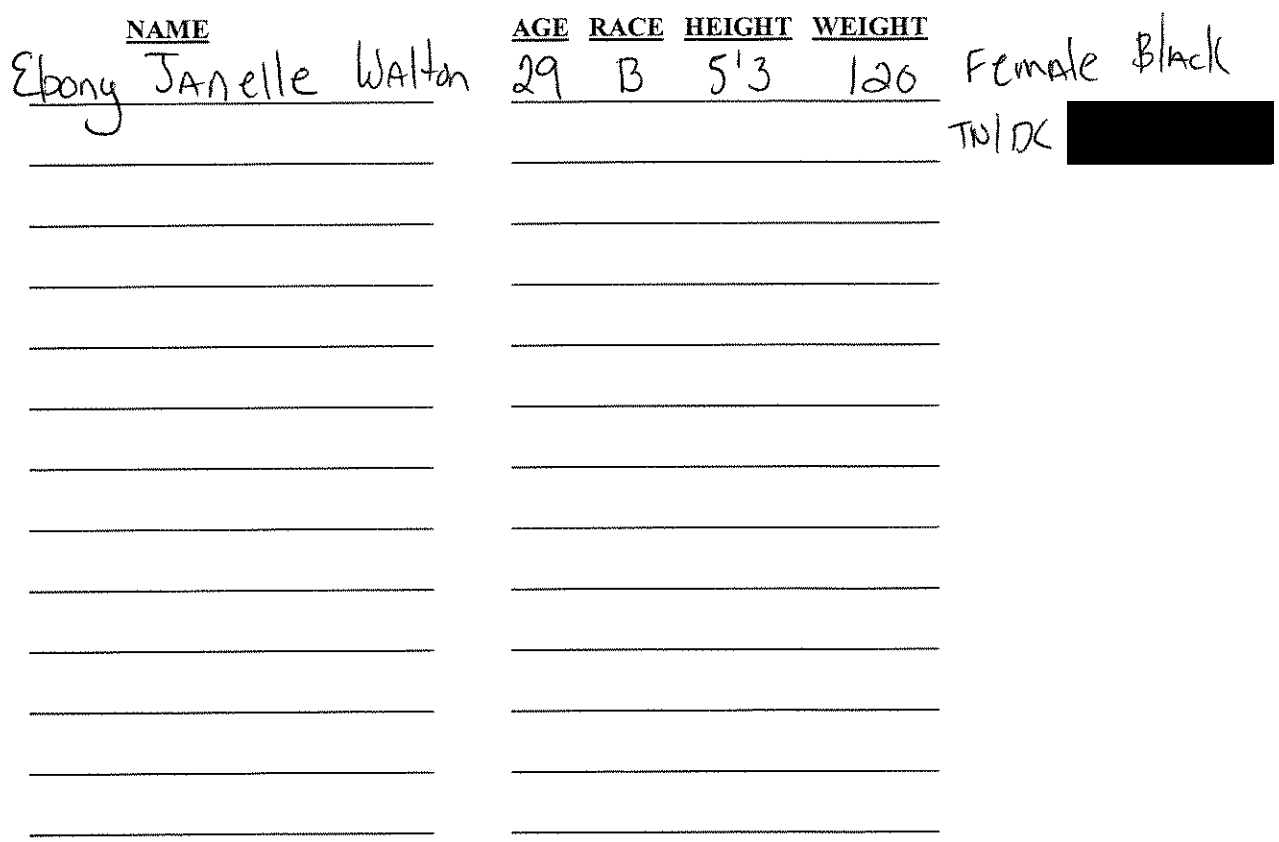 NAME AGE RACE HEIGHT WEIGHT
Ebony JAnelle WAlton 29 B 5'3 120 FemAle BlAck
TN/DC